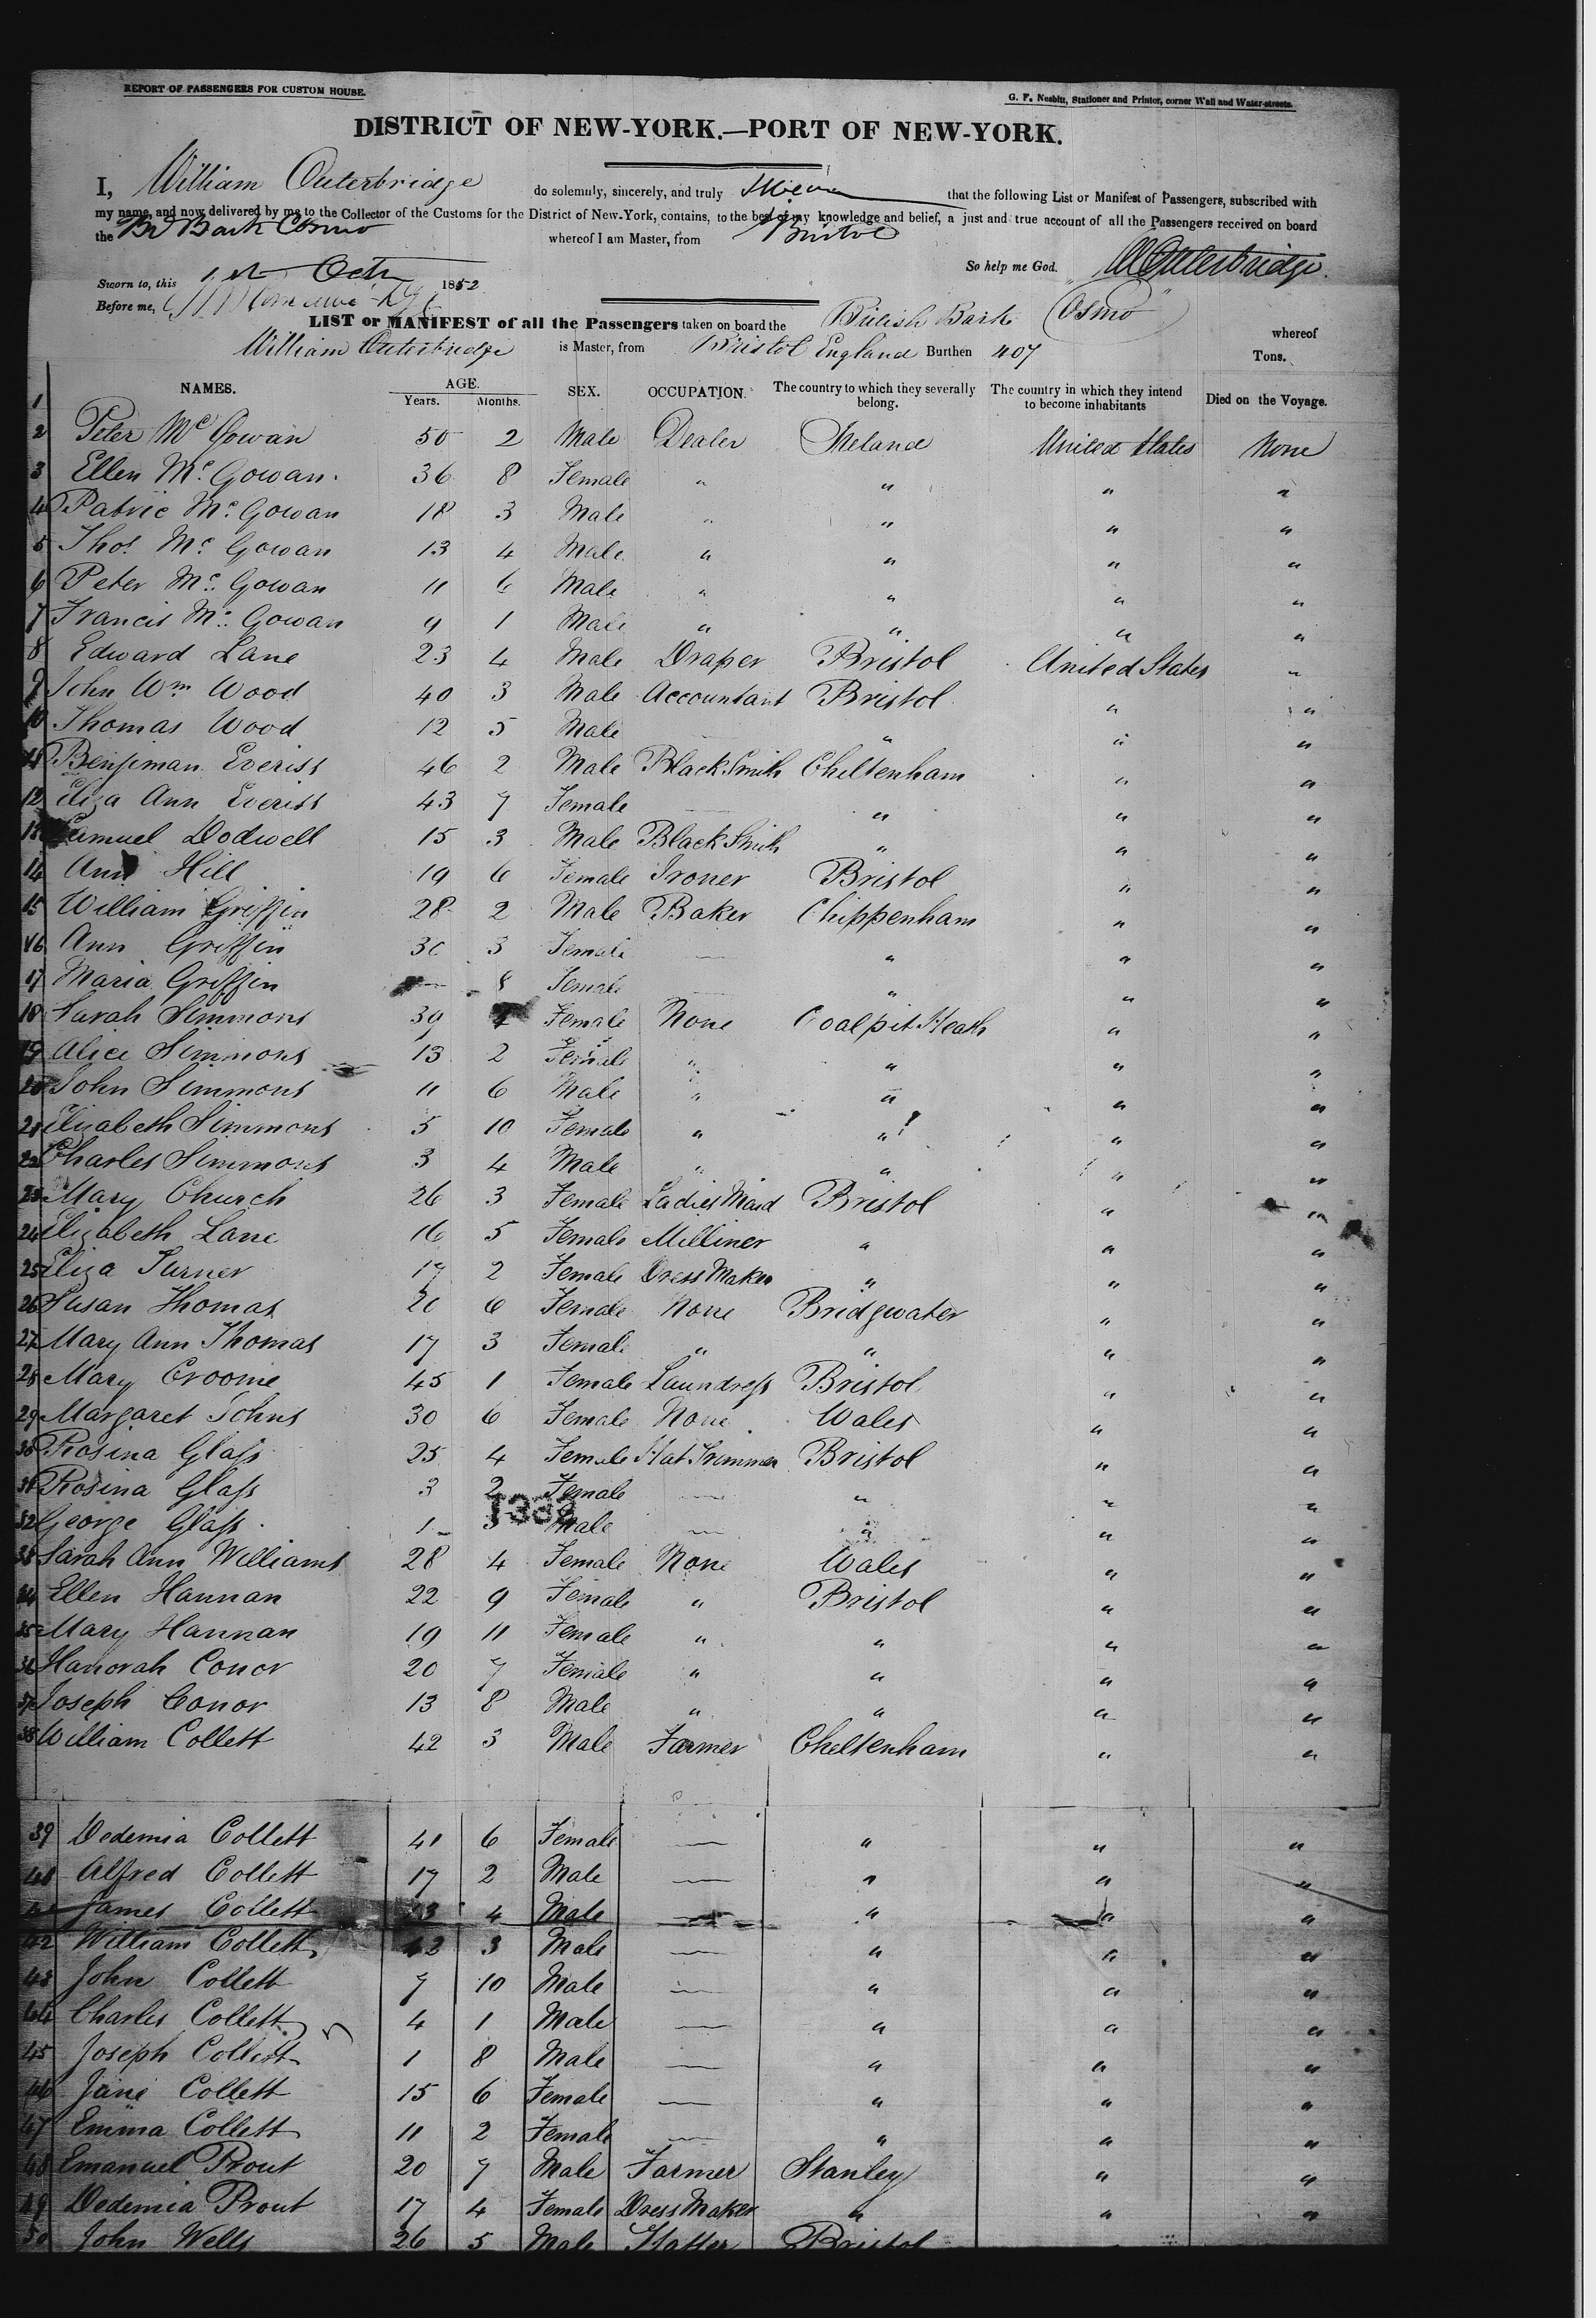 REPORT OF PASSENGERS FOR CUSTOM HOUSE.
G. F. Nesbitt, Stationer and Printer, corner Wall and Water-streets.
DISTRICT OF NEW-YORK.—PORT OF NEW-YORK.
I, William Outerbridge do solemnly, sincerely, and truly Swear that the following List or Manifest of Passengers, subscribed with
my name, and now delivered by me to the Collector of the Customs for the District of New-York, contains, to the best of my knowledge and belief, a just and true account of all the Passengers received on board
the Br Bark Cosmo whereof I am Master, from Bristol
So help me God. W Outerbridge.
Sworn to, this 1st Octr 1852
Before me,
LIST or MANIFEST of all the Passengers taken on board the British Bark "Cosmo" whereof
William Outerbridge is Master, from Bristol England Burthen 407 Tons.
NAMES. AGE. Years. Months. SEX. OCCUPATION. The country to which they severally belong. The country in which they intend to become inhabitants Died on the Voyage.
1
2 Peter Mc Gowan 50 2 Male Dealer Ireland United States None
3 Ellen Mc Gowan 36 8 Female " " " "
4 Patric Mc Gowan 18 3 Male " " " "
5 Thos Mc Gowan 13 4 Male " " " "
6 Peter Mc Gowan 11 6 Male " " " "
7 Francis Mc Gowan 9 1 Male " " " "
8 Edward Lane 23 4 Male Draper Bristol United States "
9 John Wm Wood 40 3 Male Accountant Bristol " "
10 Thomas Wood 12 5 Male — " " "
11 Benjiman Everiss 46 2 Male Black Smith Cheltenham " "
12 Eliza Ann Everiss 43 7 Female — " " "
13 Samuel Dodwell 15 3 Male Black Smith " " "
14 Ann Hill 19 6 Female Ironer Bristol " "
15 William Griffin 28 2 Male Baker Chippenham " "
16 Ann Griffin 30 3 Female — " " "
17 Maria Griffin — 8 Female — " " "
18 Sarah Simmons 39 4 Female None Coalpit Heath " "
19 Alice Simmons 13 2 Female " " " "
20 John Simmons 11 6 Male " " " "
21 Elizabeth Simmons 5 10 Female " " " "
22 Charles Simmons 3 4 Male " " " "
23 Mary Church 26 3 Female Ladies Maid Bristol " "
24 Elizabeth Lane 16 5 Female Milliner " " "
25 Eliza Turner 17 2 Female Dress Maker " " "
26 Susan Thomas 20 6 Female None Bridgwater " "
27 Mary Ann Thomas 17 3 Female " " " "
28 Mary Croome 45 1 Female Laundress Bristol " "
29 Margaret Johns 30 6 Female None Wales " "
30 Rosina Glass 25 4 Female Hat Trimmer Bristol " "
31 Rosina Glass 3 2 Female — " " "
1332
32 George Glass 1 3 Male — " " "
33 Sarah Ann Williams 28 4 Female None Wales " "
34 Ellen Hannan 22 9 Female " Bristol " "
35 Mary Hannan 19 11 Female " " " "
36 Hanorah Conor 20 7 Female " " " "
37 Joseph Conor 13 8 Male " " " "
38 William Collett 42 3 Male Farmer Cheltenham " "
39 Dedemia Collett 41 6 Female — " " "
40 Alfred Collett 17 2 Male — " " "
41 James Collett 13 4 Male — " " "
42 William Collett 3 Male — " " "
43 John Collett 7 10 Male — " " "
44 Charles Collett 4 1 Male — " " "
45 Joseph Collett 1 8 Male — " " "
46 Jane Collett 15 6 Female — " " "
47 Emma Collett 11 2 Female — " " "
48 Emanuel Prout 20 7 Male Farmer Stanley " "
49 Dedemia Prout 17 4 Female Dress Maker " " "
50 John Wells 26 5 Male Hatter Bristol